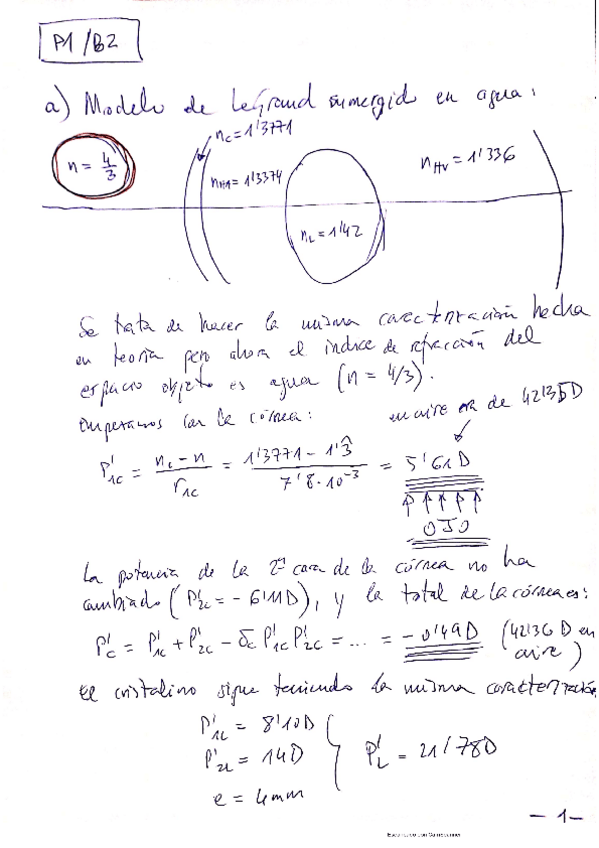 P1/B2
a) Modelo de LeGrand sumergido en agua:
n = 4/3
nc = 1'3771
nHA = 1'3374
nL = 1'42
nHV = 1'336
Se trata de hacer la misma caracterización hecha
en teoría pero ahora el índice de refracción del
espacio objeto es agua (n = 4/3).
Empezamos con la córnea:
en aire era de 42'35D
P'1C = (nc - n)/r1C = (1'3771 - 1'3̂)/(7'8·10⁻³) = 5'61D
OJO
La potencia de la 2ª cara de la córnea no ha
cambiado (P'2C = - 6'11D), y la total de la córnea es:
P'C = P'1C + P'2C - δC P'1C P'2C = ... = - 0'49D (42'36D en
aire)
El cristalino sigue teniendo la misma caracterización
P'1L = 8'10D
P'2L = 14D
e = 4mm
P'L = 21'78D
- 1 -
Escaneado con CamScanner